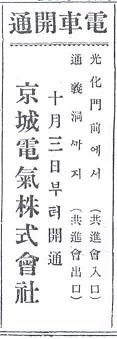 電車開通
光化門前에서 (共進會入口)
通義洞까지 (共進會出口)
十月三日부터開通
京城電氣株式會社